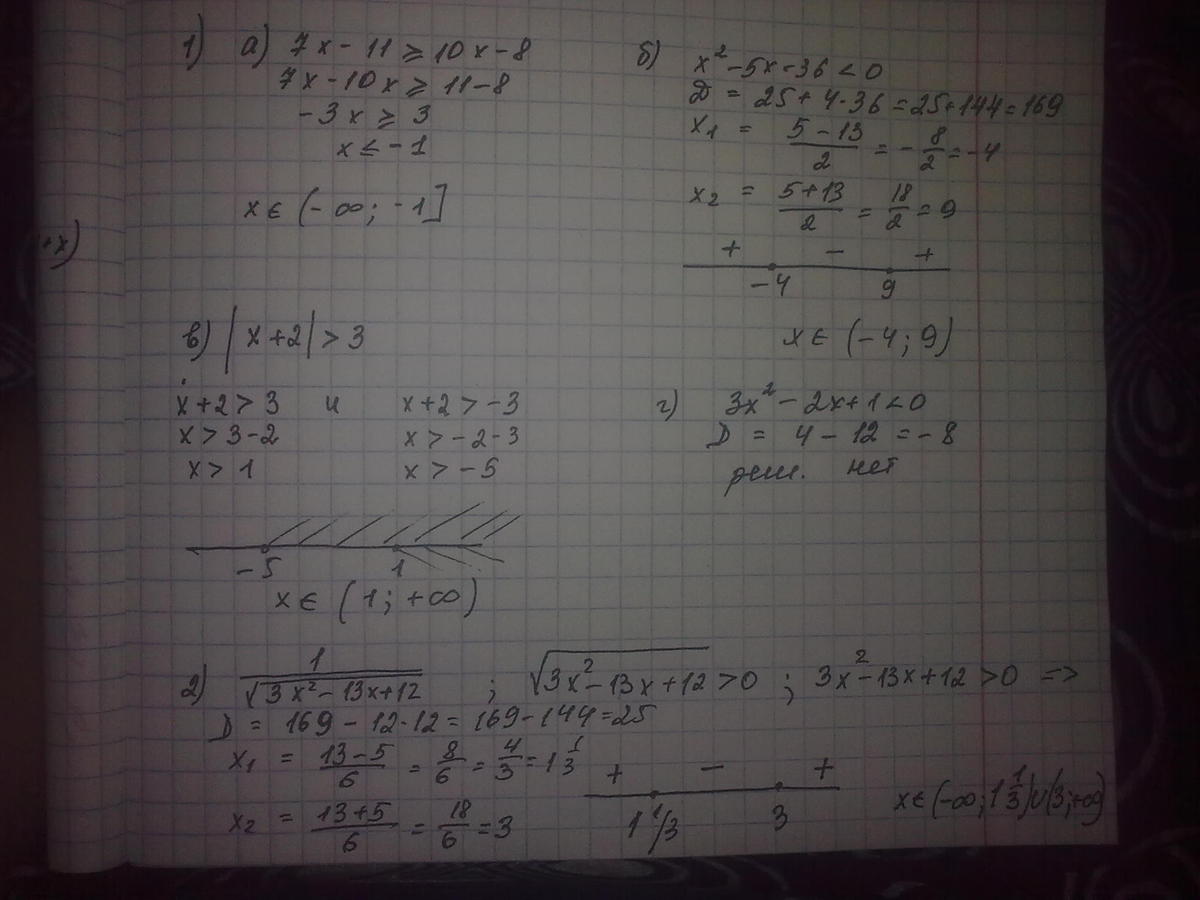 1) а) 7x - 11 ≥ 10x - 8
7x - 10x ≥ 11 - 8
-3x ≥ 3
x ≤ -1
x ∈ (-∞; -1]
б) x² - 5x - 36 < 0
D = 25 + 4·36 = 25 + 144 = 169
x₁ = (5 - 13)/2 = -8/2 = -4
x₂ = (5 + 13)/2 = 18/2 = 9
+ - +
-4 9
x ∈ (-4; 9)
+x)
в) |x + 2| > 3
x + 2 > 3 и x + 2 > -3
x > 3 - 2 x > -2 - 3
x > 1 x > -5
-5 1
x ∈ (1; +∞)
г) 3x² - 2x + 1 < 0
D = 4 - 12 = -8
реш. нет
2) 1/√(3x² - 13x + 12) ; √(3x² - 13x + 12) > 0 ; 3x² - 13x + 12 > 0 =>
D = 169 - 12·12 = 169 - 144 = 25
x₁ = (13 - 5)/6 = 8/6 = 4/3 = 1 1/3
x₂ = (13 + 5)/6 = 18/6 = 3
+ - +
1 1/3 3
x ∈ (-∞; 1 1/3) ∪ (3; +∞)